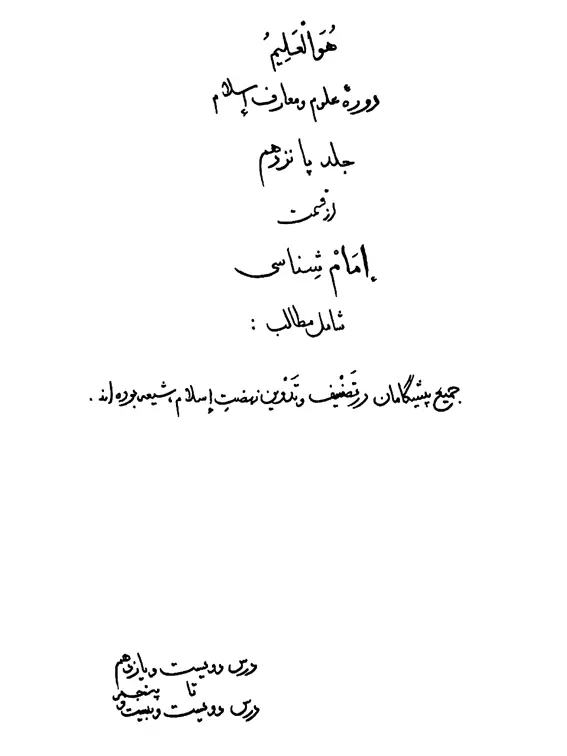 هُوَ الْعَلِیمُ
دورهٔ علوم و معارف إسلام
جلد پانزدهم
از قسمت
إمَامْ شِناسی
شامل مطالب :
جمیع پیشگامان در تَصْنیف و تَدْوین نهضتِ إسلام، شیعه بوده اند .
درس دویست و یازدهم
تا
درس دویست و بیست و پنجم